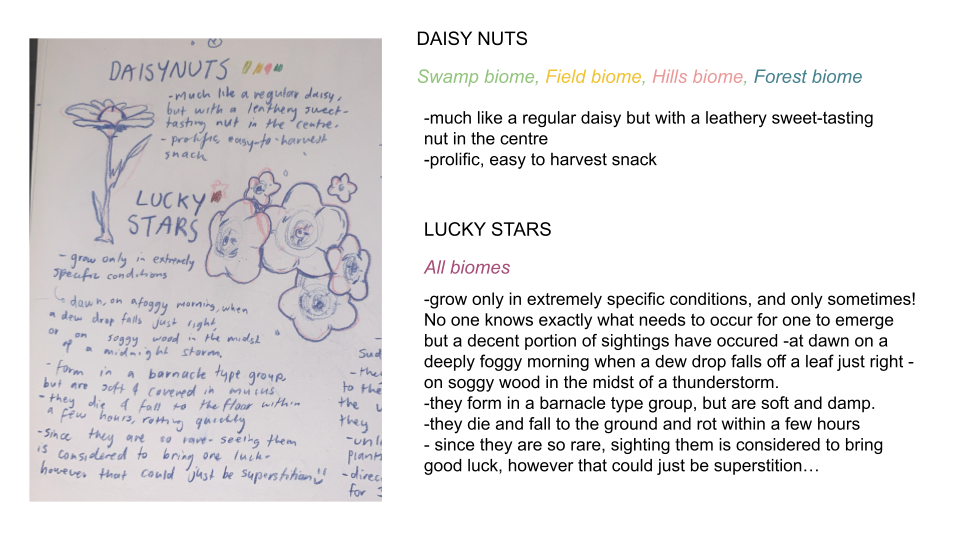 DAISYNUTS
-Much like a regular daisy,
but with a leathery sweet-
tasting nut in the centre.
- prolific, easy-to-harvest
snack
LUCKY
STARS
- grow only in extremely
specific conditions
dawn, on a foggy morning, when
a dew drop falls just right
or on soggy wood in the midst
of a midnight storm.
- form in a barnacle type group,
but are soft & covered in mucus
- they die & fall to the floor within
a few hours, rotting quickly
-since they are so rare- seeing them
is considered to bring one luck-
however that could just be superstition
-the
to the
the
they
-unl
plant
-direc
for
DAISY NUTS
Swamp biome, Field biome, Hills biome, Forest biome
-much like a regular daisy but with a leathery sweet-tasting
nut in the centre
-prolific, easy to harvest snack
LUCKY STARS
All biomes
-grow only in extremely specific conditions, and only sometimes!
No one knows exactly what needs to occur for one to emerge
but a decent portion of sightings have occured -at dawn on a
deeply foggy morning when a dew drop falls off a leaf just right -
on soggy wood in the midst of a thunderstorm.
-they form in a barnacle type group, but are soft and damp.
-they die and fall to the ground and rot within a few hours
- since they are so rare, sighting them is considered to bring
good luck, however that could just be superstition…